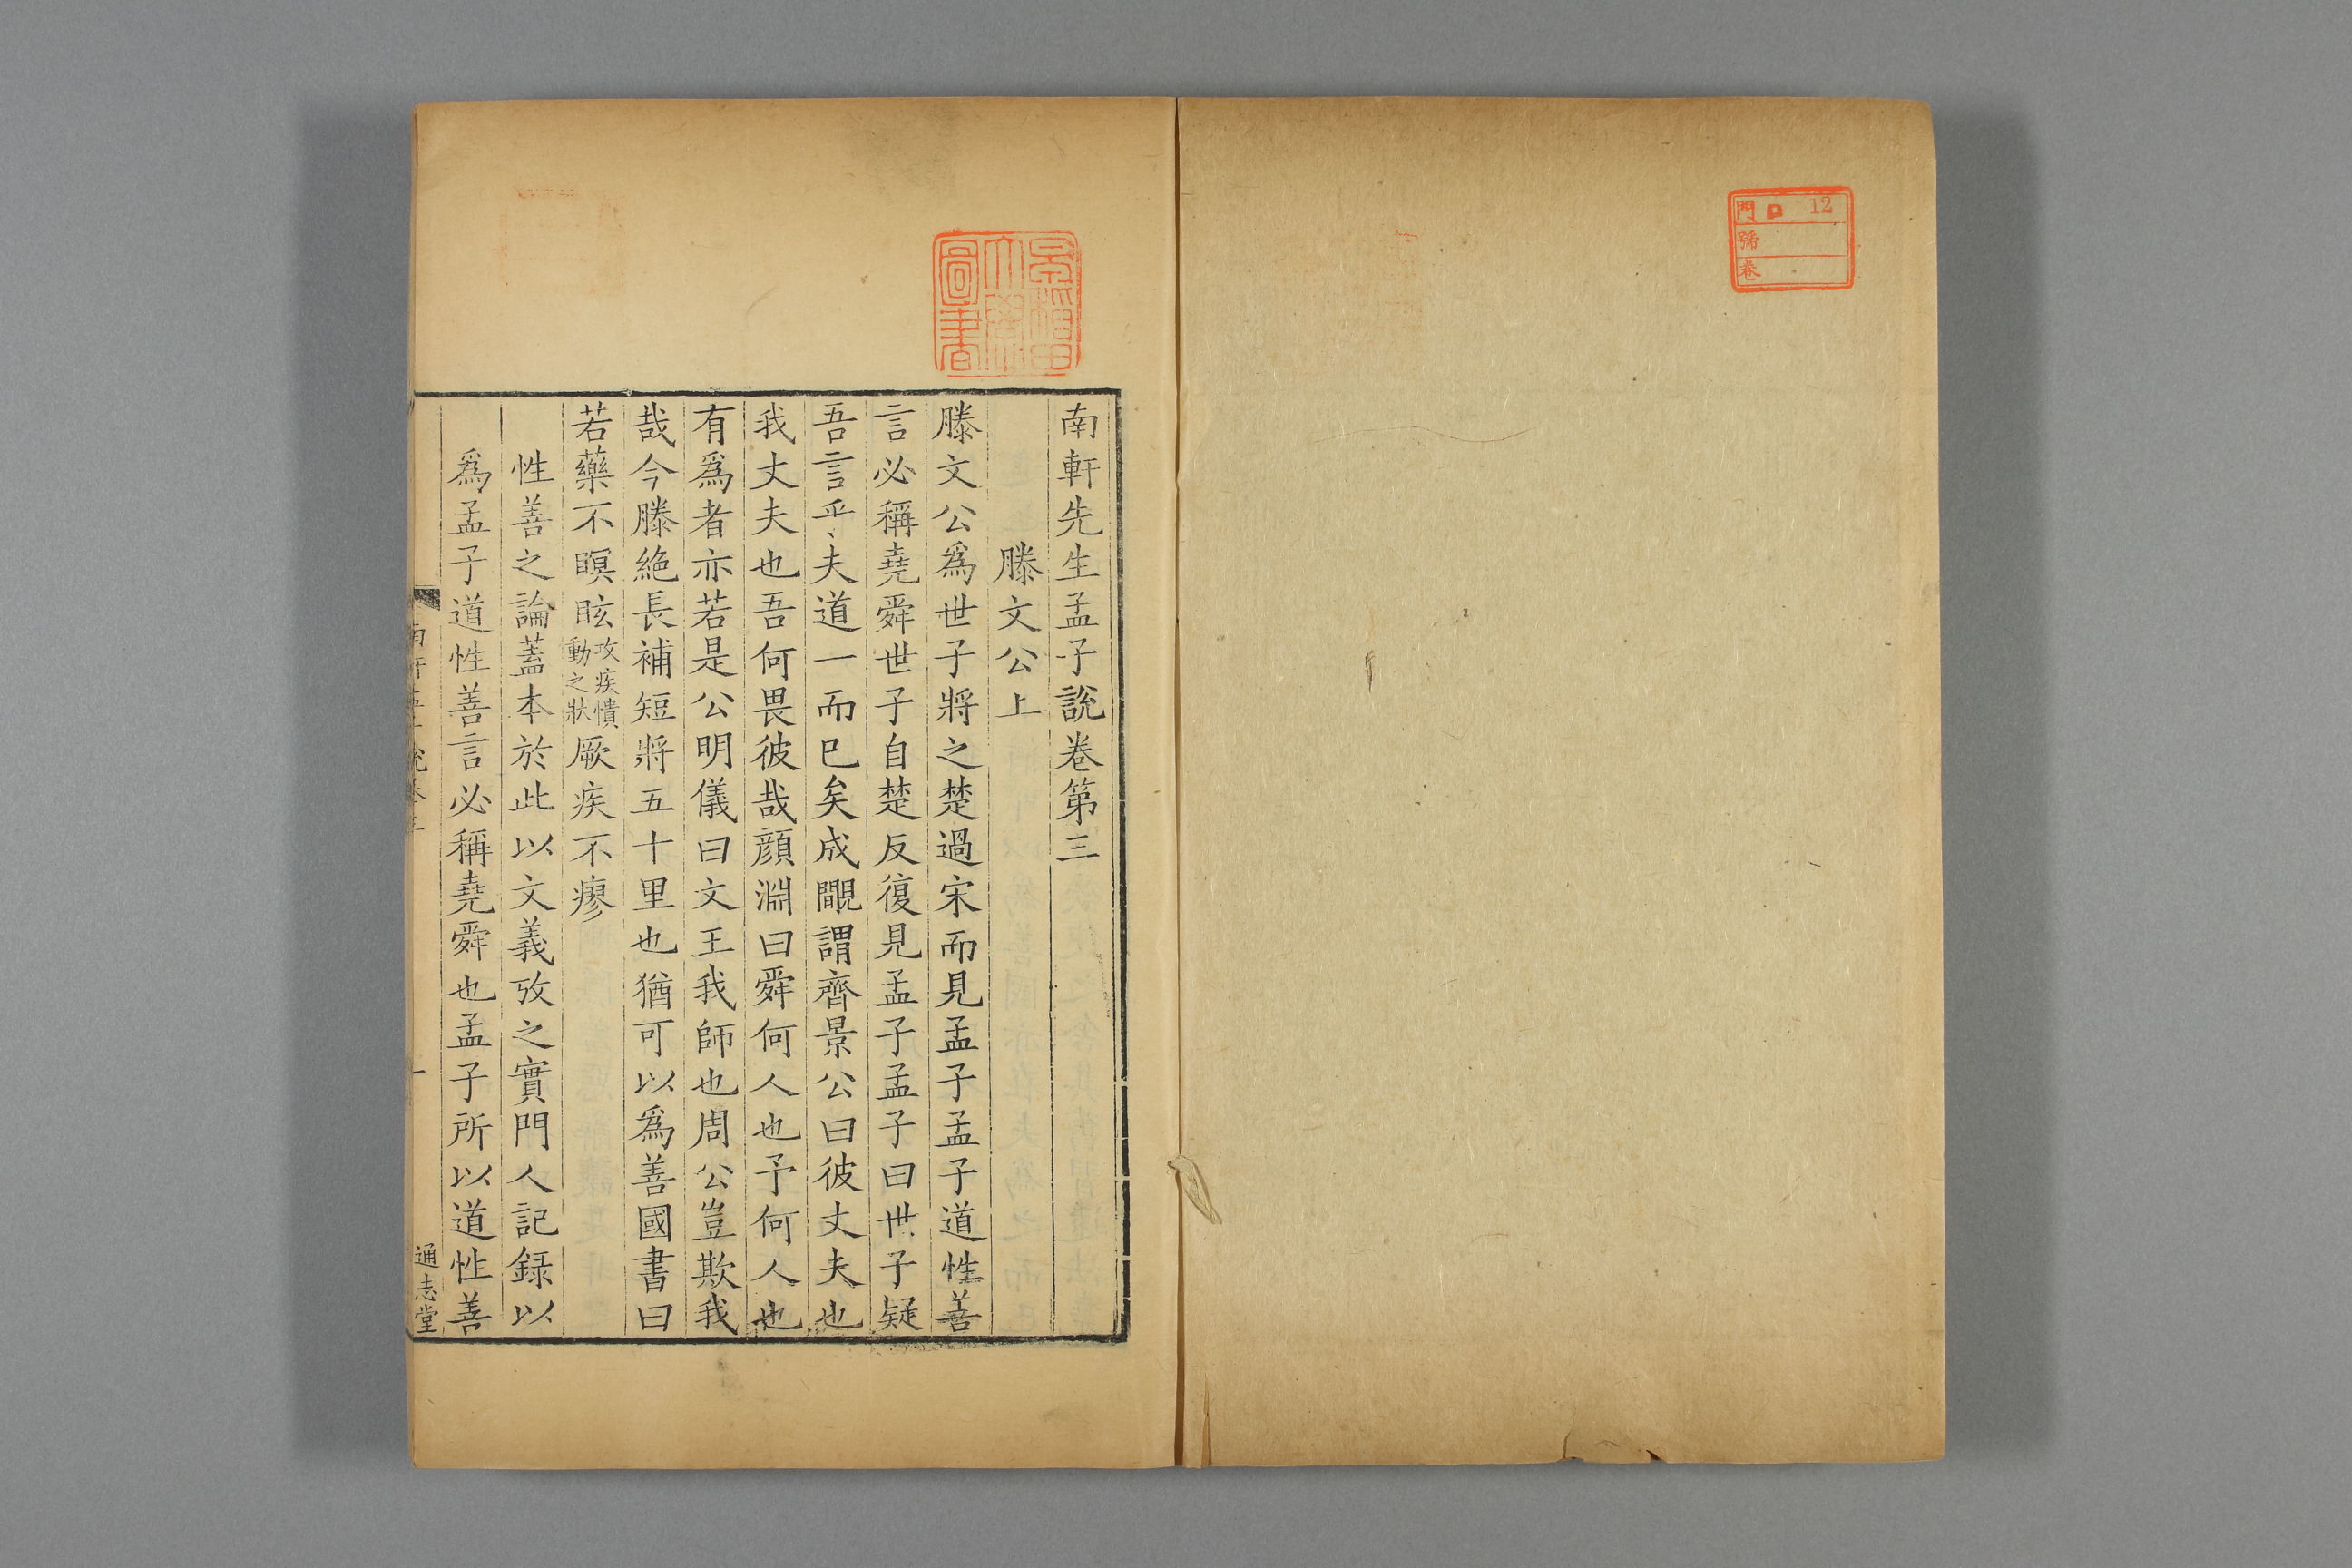 門 ロ 12
號
卷
早稻田大學圖書
南軒先生孟子說卷第三
滕文公上
滕文公爲世子將之楚過宋而見孟子孟子道性善
言必稱堯舜世子自楚反復見孟子孟子曰世子疑
吾言乎夫道一而已矣成覸謂齊景公曰彼丈夫也
我丈夫也吾何畏彼哉顔淵曰舜何人也予何人也
有爲者亦若是公明儀曰文王我師也周公豈欺我
哉今滕絶長補短將五十里也猶可以爲善國書曰
若藥不瞑眩攻疾憒動之狀厥疾不瘳
性善之論蓋本於此以文義攷之實門人記録以
爲孟子道性善言必稱堯舜也孟子所以道性善
一
通志堂